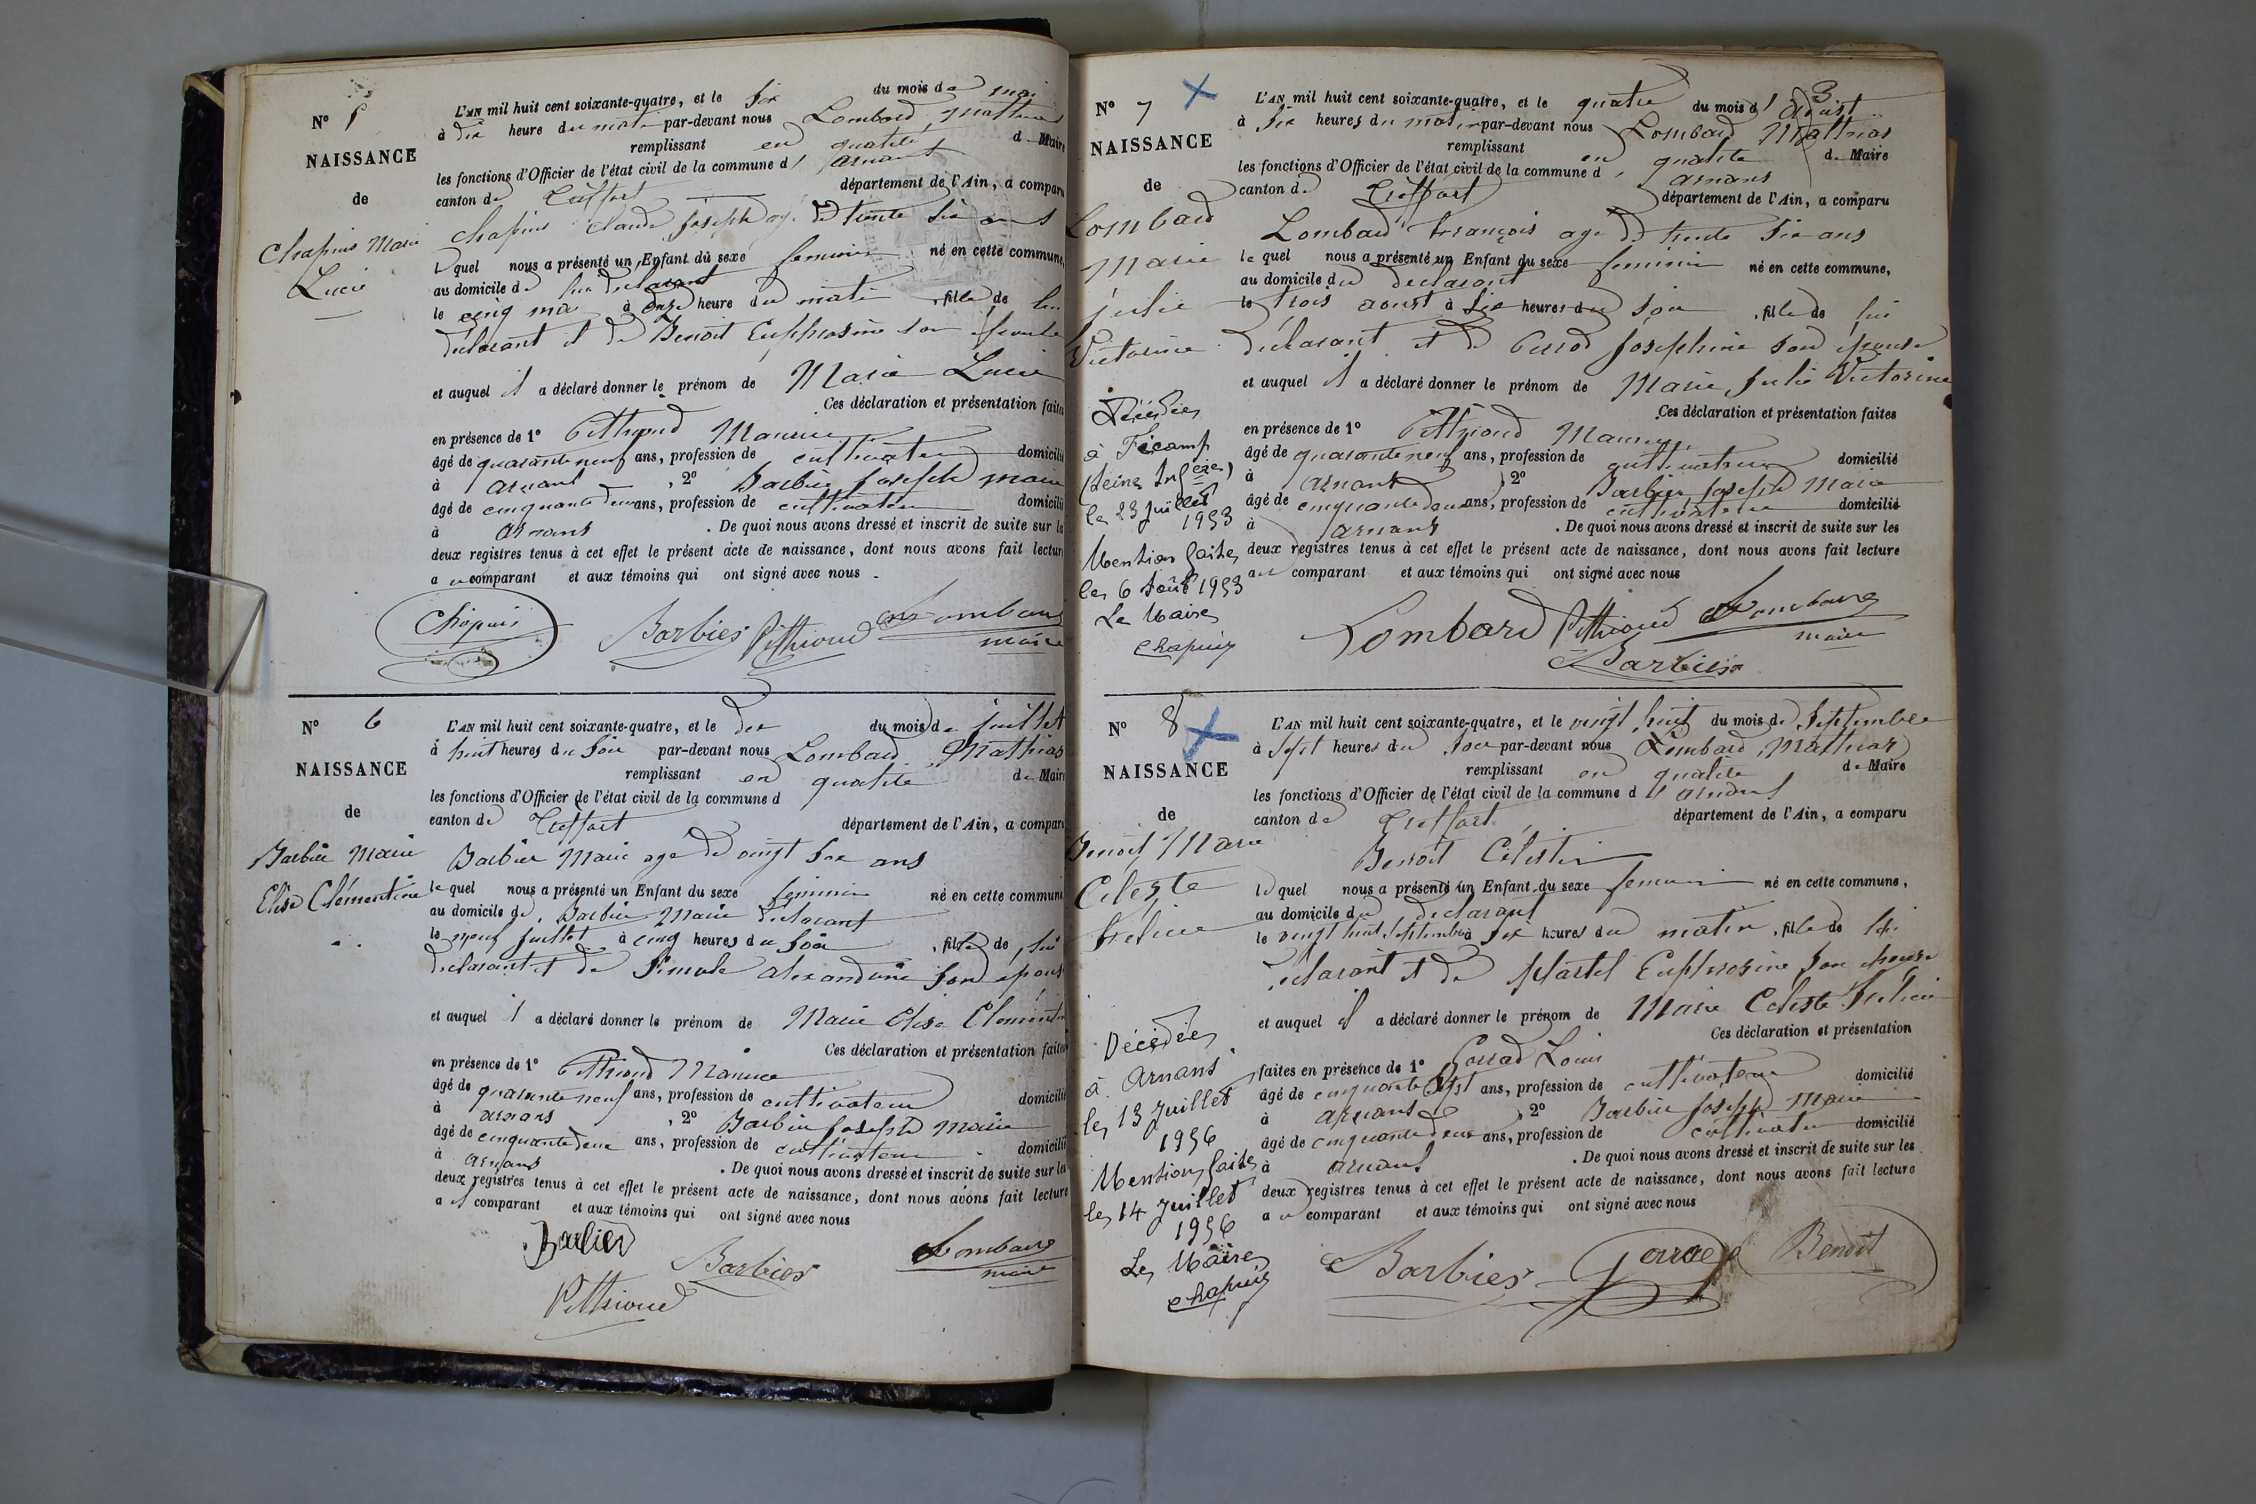 N° 5
NAISSANCE
de
Chapuis Marie
Lucie
L'AN mil huit cent soixante-quatre, et le six du mois de mai
à dix heure du matin par-devant nous Lombard Mathias
remplissant en qualité de Maire
les fonctions d'Officier de l'état civil de la commune d' arnans
canton de Treffort département de l'Ain, a comparu
Chapuis Claude Joseph age de trente six ans
lequel nous a présenté un Enfant du sexe feminin né en cette commune,
au domicile de lui declarant
le cinq mai à onze heure du matin , fille de lui
déclarant et de Benoit Euphrosine son épouse
et auquel il a déclaré donner le prénom de Marie Lucie
Ces déclaration et présentation faites
en présence de 1° Pithioud Maurice
âgé de quarante neuf ans, profession de cultivateur domicilié
à arnans , 2° Barbier Joseph marie
âgé de cinquante deux ans, profession de cultivateur domicilié
à arnans . De quoi nous avons dressé et inscrit de suite sur les
deux registres tenus à cet effet le présent acte de naissance, dont nous avons fait lecture
au comparant et aux témoins qui ont signé avec nous
Chapuis Barbier Pithioud Lombard
maire
N° 6
NAISSANCE
de
Barbier Marie
Elise Clémentine
L'AN mil huit cent soixante-quatre, et le dix du mois de juillet
à huit heures du soir par-devant nous Lombard Mathias
remplissant en qualité de Maire
les fonctions d'Officier de l'état civil de la commune d
canton de Treffort département de l'Ain, a comparu
Barbier Marie age de vingt six ans
lequel nous a présenté un Enfant du sexe feminin né en cette commune
au domicile de Barbier Marie declarant
le neuf juillet à cinq heures du soir , fille de lui
declarant et de alexandrine son épouse
et auquel il a déclaré donner le prénom de Marie Elise Clémentine
Ces déclaration et présentation faites
en présence de 1° Pithioud Maurice
âgé de quarante neuf ans, profession de cultivateur domicilié
à arnans , 2° Barbier Joseph Marie
âgé de cinquante deux ans, profession de cultivateur domicilié
à arnans . De quoi nous avons dressé et inscrit de suite sur les
deux registres tenus à cet effet le présent acte de naissance, dont nous avons fait lecture
au comparant et aux témoins qui ont signé avec nous
Barbier Barbier Lombard
maire
Pithioud
3
N° 7
NAISSANCE
de
Lombard
Marie
julie
Victorine
Décédée
à Fécamp
(Seine Infére)
le 23 juillet
1953
Mention faite
le 6 Août 1953
Le Maire
Chapuis
L'AN mil huit cent soixante-quatre, et le quatre du mois d'aoust
à six heures du matin par-devant nous Lombard Mathias
remplissant en qualité de Maire
les fonctions d'Officier de l'état civil de la commune d' arnans
canton de Treffort département de l'Ain, a comparu
Lombard François age de trente six ans
lequel nous a présenté un Enfant du sexe feminin né en cette commune,
au domicile du declarant
le trois aoust à six heures du soir , fille de lui
déclarant et de Perrod Josephine son épouse
et auquel il a déclaré donner le prénom de Marie Julie Victorine
Ces déclaration et présentation faites
en présence de 1° Pithioud Maurice
âgé de quarante neuf ans, profession de cultivateur domicilié
à arnans , 2° Barbier Joseph Marie
âgé de cinquante deux ans, profession de cultivateur domicilié
à arnans . De quoi nous avons dressé et inscrit de suite sur les
deux registres tenus à cet effet le présent acte de naissance, dont nous avons fait lecture
au comparant et aux témoins qui ont signé avec nous
Lombard Pithioud Lombard
maire
Barbier
N° 8
NAISSANCE
de
Benoit Marie
Celeste
Félicie
Décédée
à Arnans
le 13 juillet
1956
Mention faite
le 14 juillet
1956
Le Maire
Chapuis
L'AN mil huit cent soixante-quatre, et le vingt huit du mois de Septembre
à sept heures du soir par-devant nous Lombard Mathias
remplissant en qualité de Maire
les fonctions d'Officier de l'état civil de la commune d' arnans
canton de Treffort département de l'Ain, a comparu
Benoit Célestin
lequel nous a présenté un Enfant du sexe feminin né en cette commune,
au domicile du declarant
le vingt huit Septembre à six heures du matin , fille de lui
declarant et de Martel Euphrosine son épouse
et auquel il a déclaré donner le prénom de Marie Celeste Felicie
Ces déclaration et présentation
faites en présence de 1° Louis
âgé de cinquante sept ans, profession de cultivateur domicilié
à arnans , 2° Barbier Joseph Marie
âgé de cinquante deux ans, profession de cultivateur domicilié
à arnans . De quoi nous avons dressé et inscrit de suite sur les
deux registres tenus à cet effet le présent acte de naissance, dont nous avons fait lecture
au comparant et aux témoins qui ont signé avec nous
Barbier Benoit